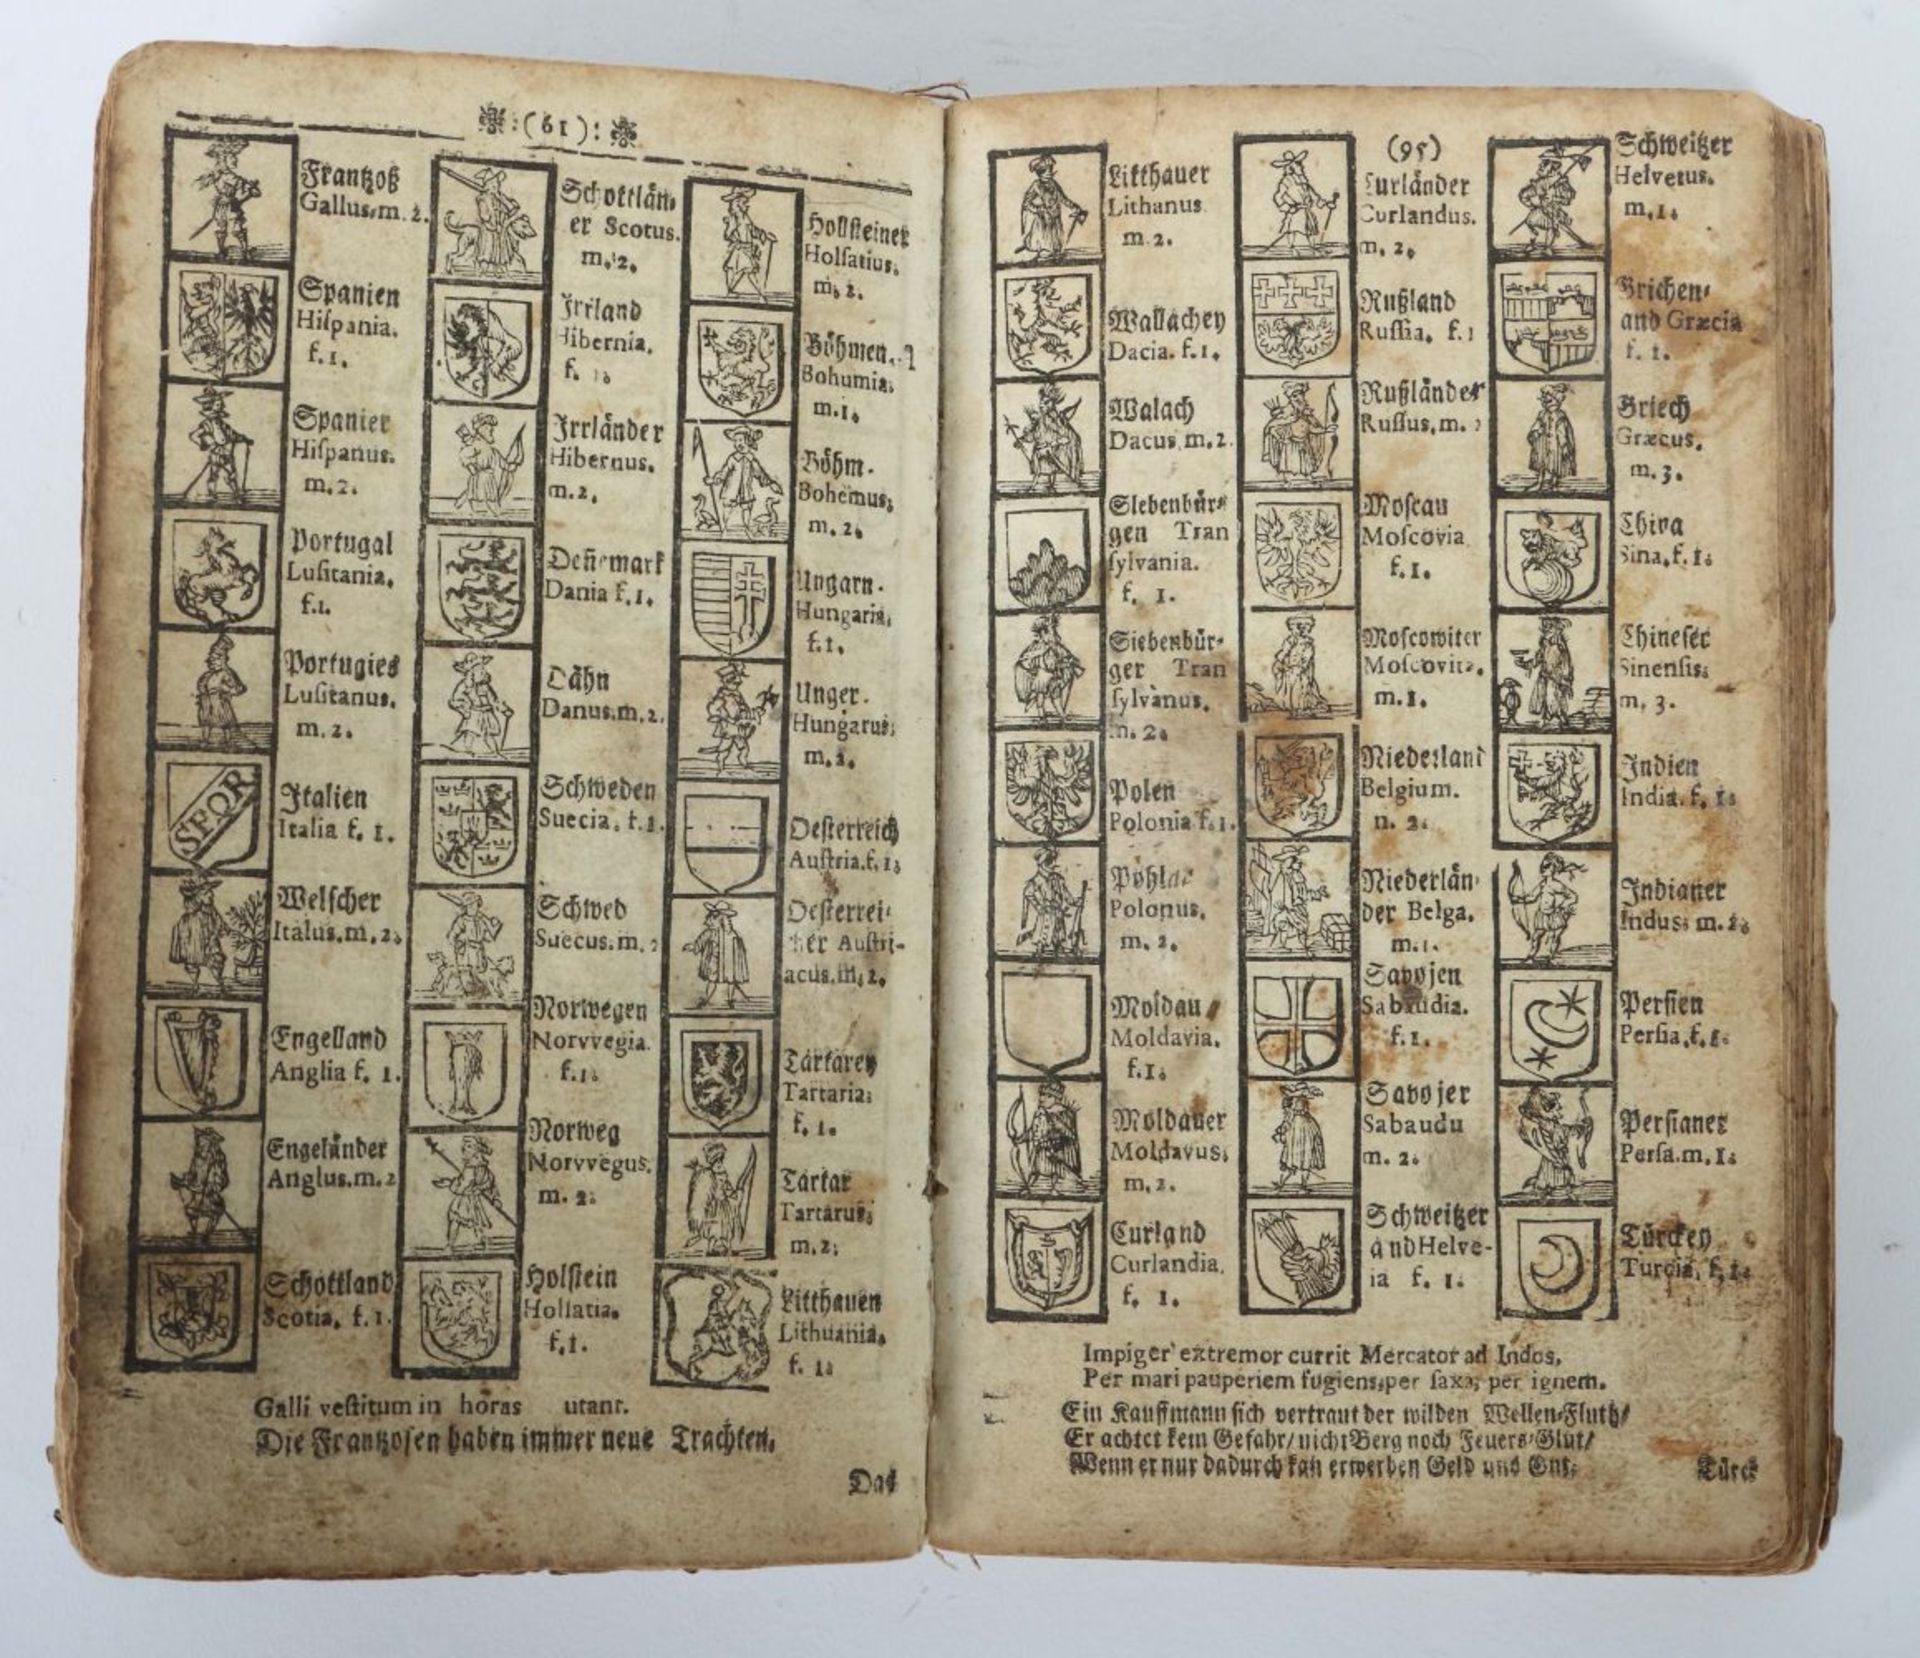 :(61):
Frantzoß
Gallus, m. 2.
Spanien
Hispania.
f. 1.
Spanier
Hispanus.
m. 2.
Portugal
Lusitania.
f. 1.
Portugies
Lusitanus.
m. 2.
SFOR
Italien
Italia f. 1.
Welscher
Italus. m. 2.
Engelland
Anglia f. 1.
Engeländer
Anglus. m. 2
Schottland
Scotia. f. 1.
Schottlän-
er Scotus.
m. 2.
Irrland
Hibernia.
f.
Irrländer
Hibernus.
m. 2.
Deñemark
Dania f. 1.
Dähn
Danus. m. 2.
Schweden
Suecia. f. 1.
Schwed
Suecus. m. 2
Norwegen
Norvvegia.
f. 1.
Norweg
Norvvegus.
m. 2.
Holstein
Holsatia.
f. 1.
Hollsteiner
Holsatius.
m. 2.
Böhmen.
Bohumia.
m. 1.
Böhm.
Bohemus.
m. 2.
Ungarn.
Hungaria.
f. 1.
Unger.
Hungarus.
m. 2.
Oesterreich
Austria. f. 1.
Oesterrei-
cher Austri-
acus. m. 2.
Tartarey
Tartaria.
f. 1.
Tartar
Tartarus.
m. 2.
Litthauen
Lithuania.
f. 1.
Galli vestitum in horas utant.
Die Frantzosen haben immer neue Trachten.
Das
(95)
Litthauer
Lithanus
m. 2.
Wallachey
Dacia. f. 1.
Walach
Dacus, m. 2.
Siebenbür-
gen Tran
sylvania.
f. 1.
Siebenbür-
ger Tran
sylvànus.
m. 2.
Polen
Polonia f. 1.
Pohlac
Polonus.
m. 2.
Moldau
Moldavia.
f. 1.
Moldauer
Moldavus.
m. 2.
Curland
Curlandia.
f. 1.
Curländer
Curlandus.
m. 2.
Rußland
Russia. f. 1
Rußländer
Russus, m. 2
Moscau
Moscovia
f. 1.
Moscowiter
Moscovita.
m. 1.
Niederland
Belgium.
n. 2.
Niederlän-
der Belga.
m. 1.
Savojen
Sabaudia.
f. 1.
Savojer
Sabaudu
m. 2.
Schweitzer
and Helve-
ia f. 1.
Schweitzer
Helvetus.
m. 1.
Grichen-
and Græcia
f. 1.
Griech
Græcus.
m. 3.
China
Sina, f. 1.
Chineser
Sinensis.
m. 3.
Indien
India. f. 1.
Indianer
Indus. m. 2.
Persien
Persia. f. 1.
Persianer
Persa. m. 1.
Türckey
Turcia, f. 1.
Impiger extremor currit Mercator ad Indos,
Per mari pauperiem fugiens, per saxa, per ignem.
Ein Kauffmann sich vertraut der wilden Wellen-Fluth/
Er achtet kein Gefahr/ nicht Berg noch Feuers-Glut/
Wenn er nur dadurch kan erwerben Geld und Gut.
Türck